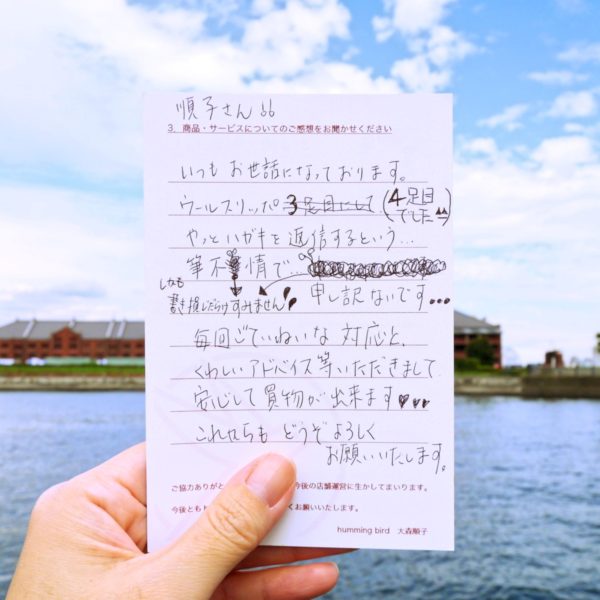 順子さん
3. 商品・サービスについてのご感想をお聞かせください
いつもお世話になっております。
ウールスリッパ 3足目にして (4足目でした^^)
やっとハガキを返信するという…
筆不精で…
申し訳ないです…
しかも
書き損じだらけすみません
毎回ごていねいな対応と、
くわしいアドバイス等いただきまして
安心して買物が出来ます♥
これからもどうぞよろしく
お願いいたします。
ご協力ありがと 今後の店舗運営に生かしてまいります。
今後とも くお願いいたします。
humming bird 大森順子